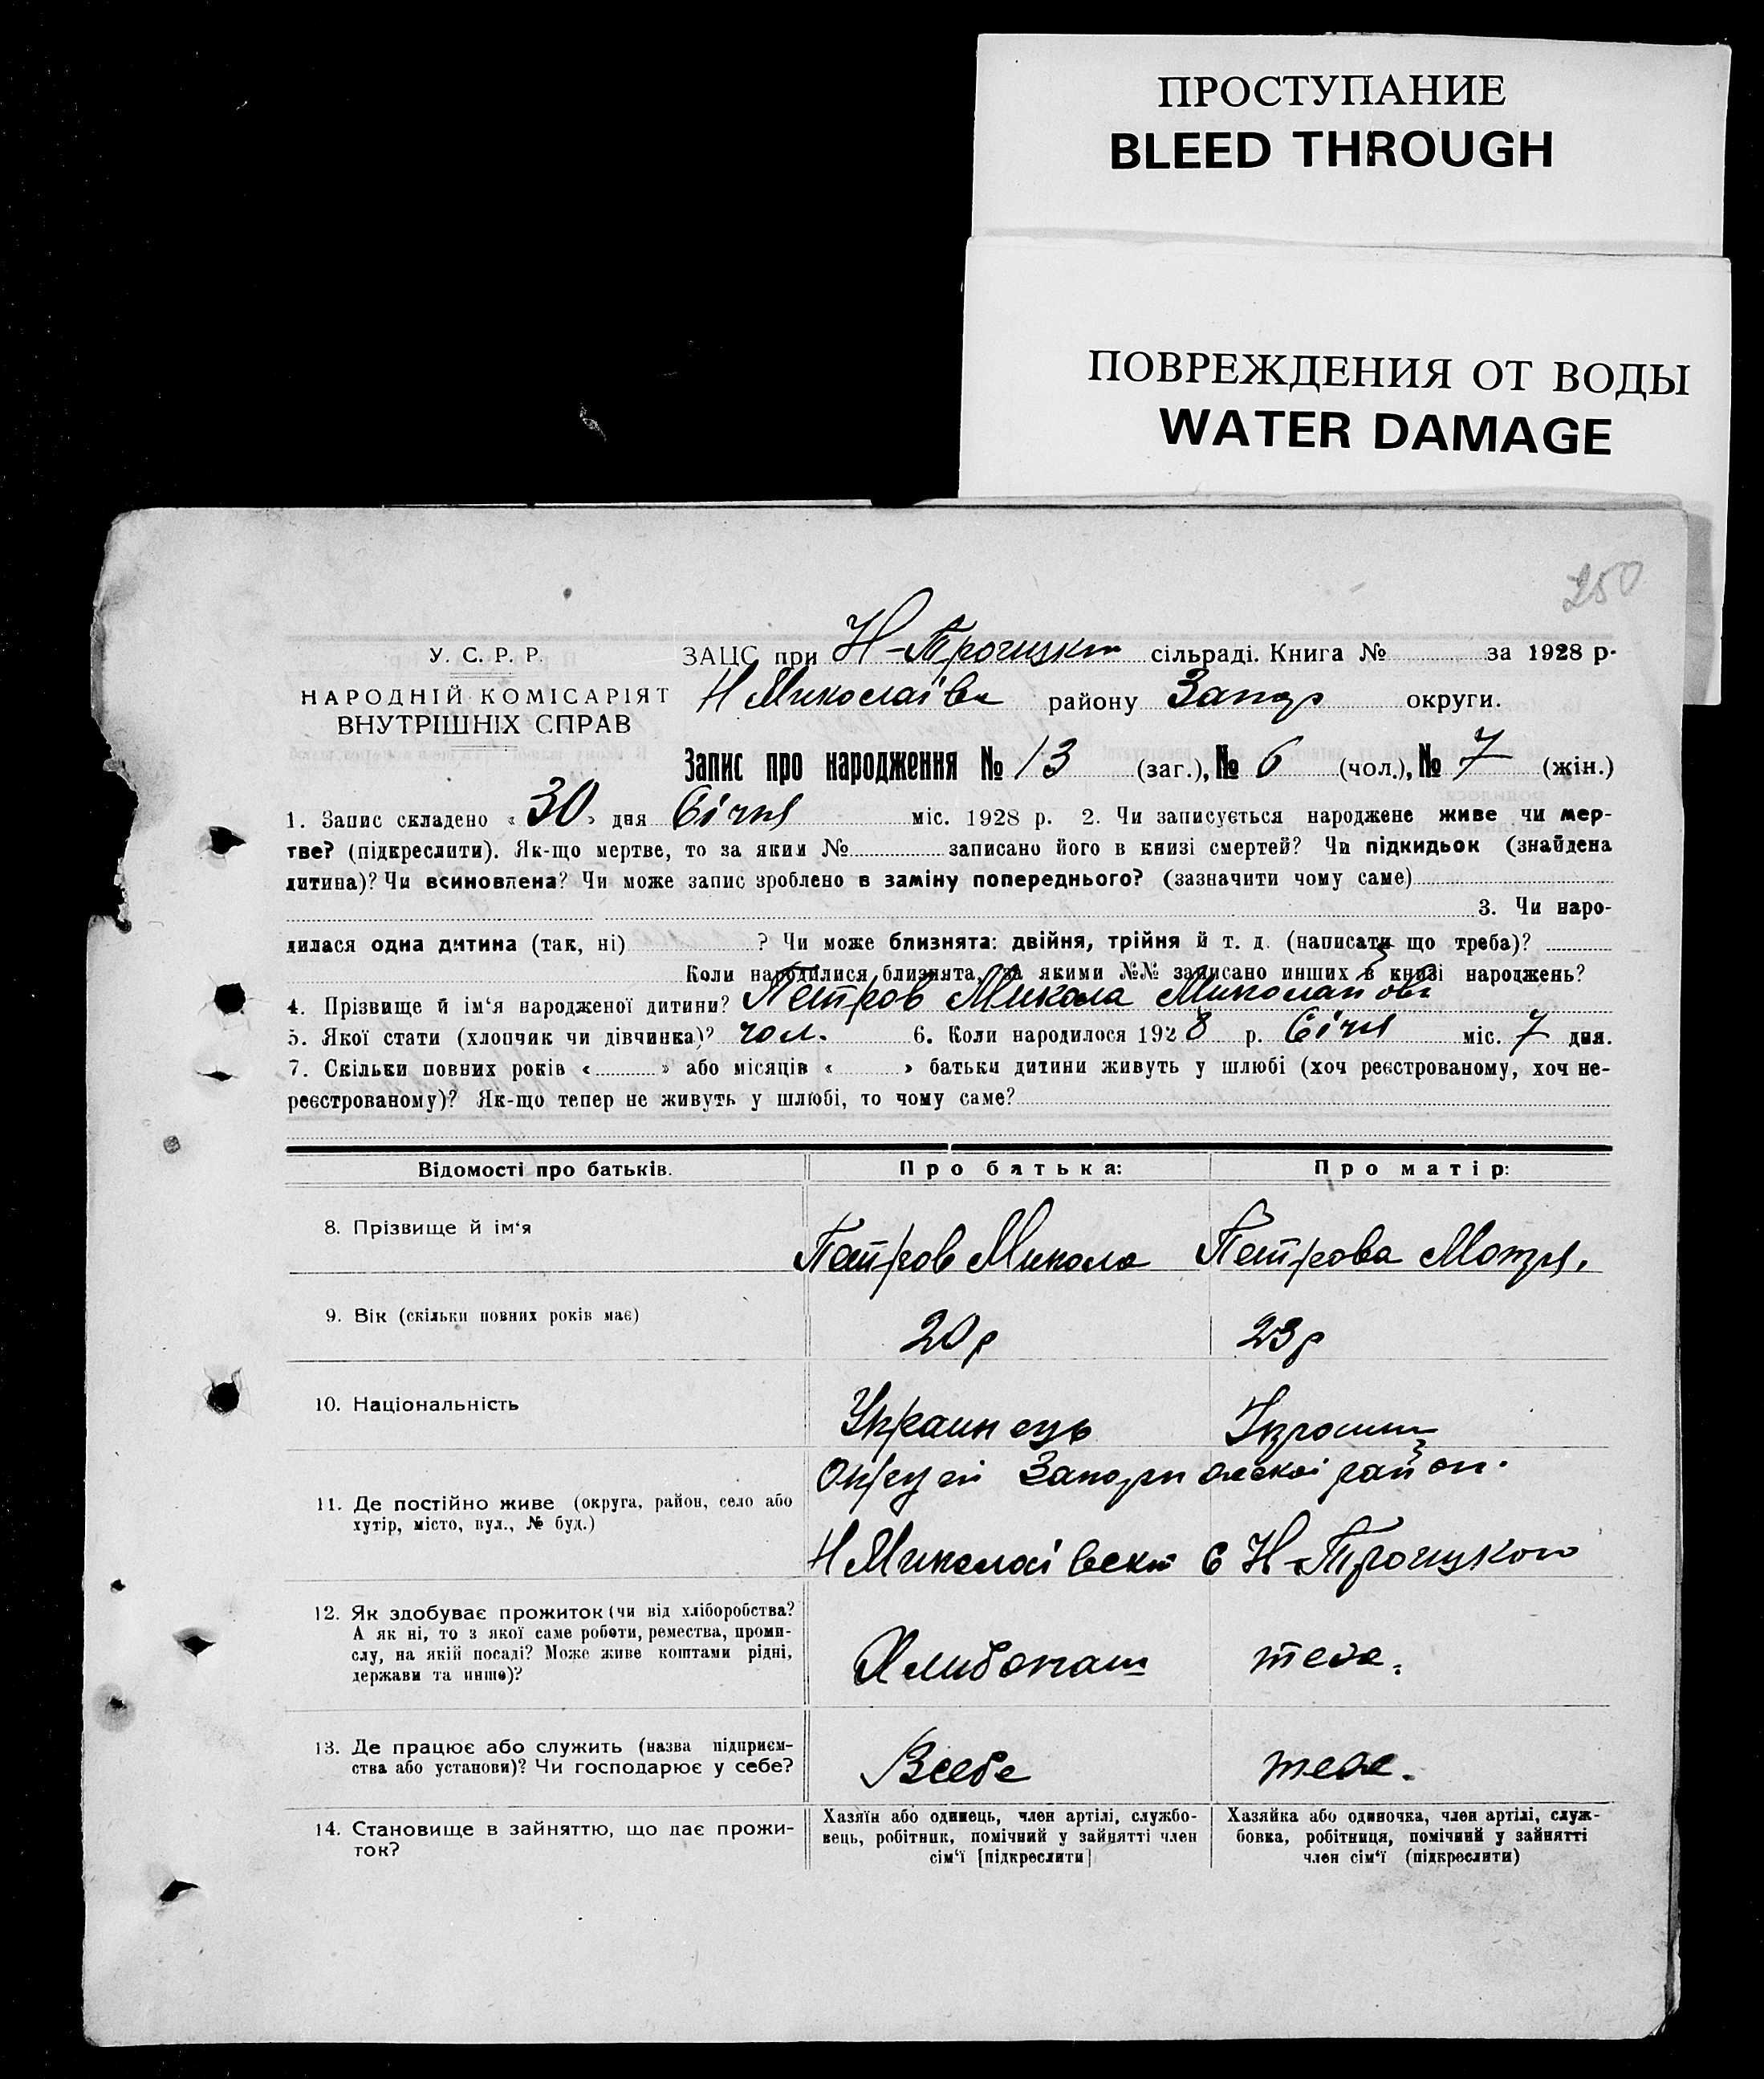 ПРОСТУПАНИЕ
BLEED THROUGH
ПОВРЕЖДЕНИЯ ОТ ВОДЫ
WATER DAMAGE
250
У. С. Р. Р.
НАРОДНІЙ КОМІСАРІЯТ
ВНУТРІШНІХ СПРАВ
ЗАЦС при Н-Троицкій сільраді. Книга № за 1928 р.
Н Миколаівск району Запор округи.
Запис про народження № 13 (заг.), № 6 (чол.), № 7 (жін.)
1. Запис складено « 30 » дня Січня міс. 1928 р. 2. Чи записується народжене живе чи мер-
тве? (підкреслити). Як-що мертве, то за яким № записано його в книзі смертей? Чи підкидьок (знайдена
дитина)? Чи всиновлена? Чи може запис зроблено в заміну попереднього? (зазначити чому саме)
3. Чи наро-
дилася одна дитина (так, ні) ? Чи може близнята: двійня, трійня й т. д. (написати що треба)?
Коли народилися близнята, за якими №№ записано инших в книзі народжень?
4. Прізвище й ім‘я народженої дитини? Петров Микола Миколайов
5. Якої стати (хлопчик чи дівчинка)? чол. 6. Коли народилося 1928 р. Січня міс. 7 дня.
7. Скільки повних років « » або місяців « » батьки дитини живуть у шлюбі (хоч реєстрованому, хоч не-
реєстрованому)? Як-що тепер не живуть у шлюбі, то чому саме?
Відомості про батьків.
Про батька:
Про матір:
8. Прізвище й ім‘я
Петров Микола
Петрова Мотря.
9. Вік (скільки повних років має)
20 р
23 р
10. Національність
Украинець
11. Де постійно живе (округа, район, село або
хутір, місто, вул., № буд.)
Округи район.
Н Миколаівскій С Н-Троицкого
12. Як здобуває прожиток (чи від хліборобства?
А як ні, то з якої саме роботи, ремества, проми-
слу, на якій посаді? Може живе коштами рідні,
держави та инше)?
Хлибопаш
теже.
13. Де працює або служить (назва підприєм-
ства або установи)? Чи господарює у себе?
Всебе
теже.
14. Становище в зайняттю, що дає прожи-
ток?
Хазяїн або одинець, член артілі, службо-
вець, робітник, помічний у зайнятті член
сім‘ї [підкреслити]
Хазяйка або одиночка, член артілі, служ-
бовка, робітниця, помічний у зайнятті
член сім‘ї (підкреслити)